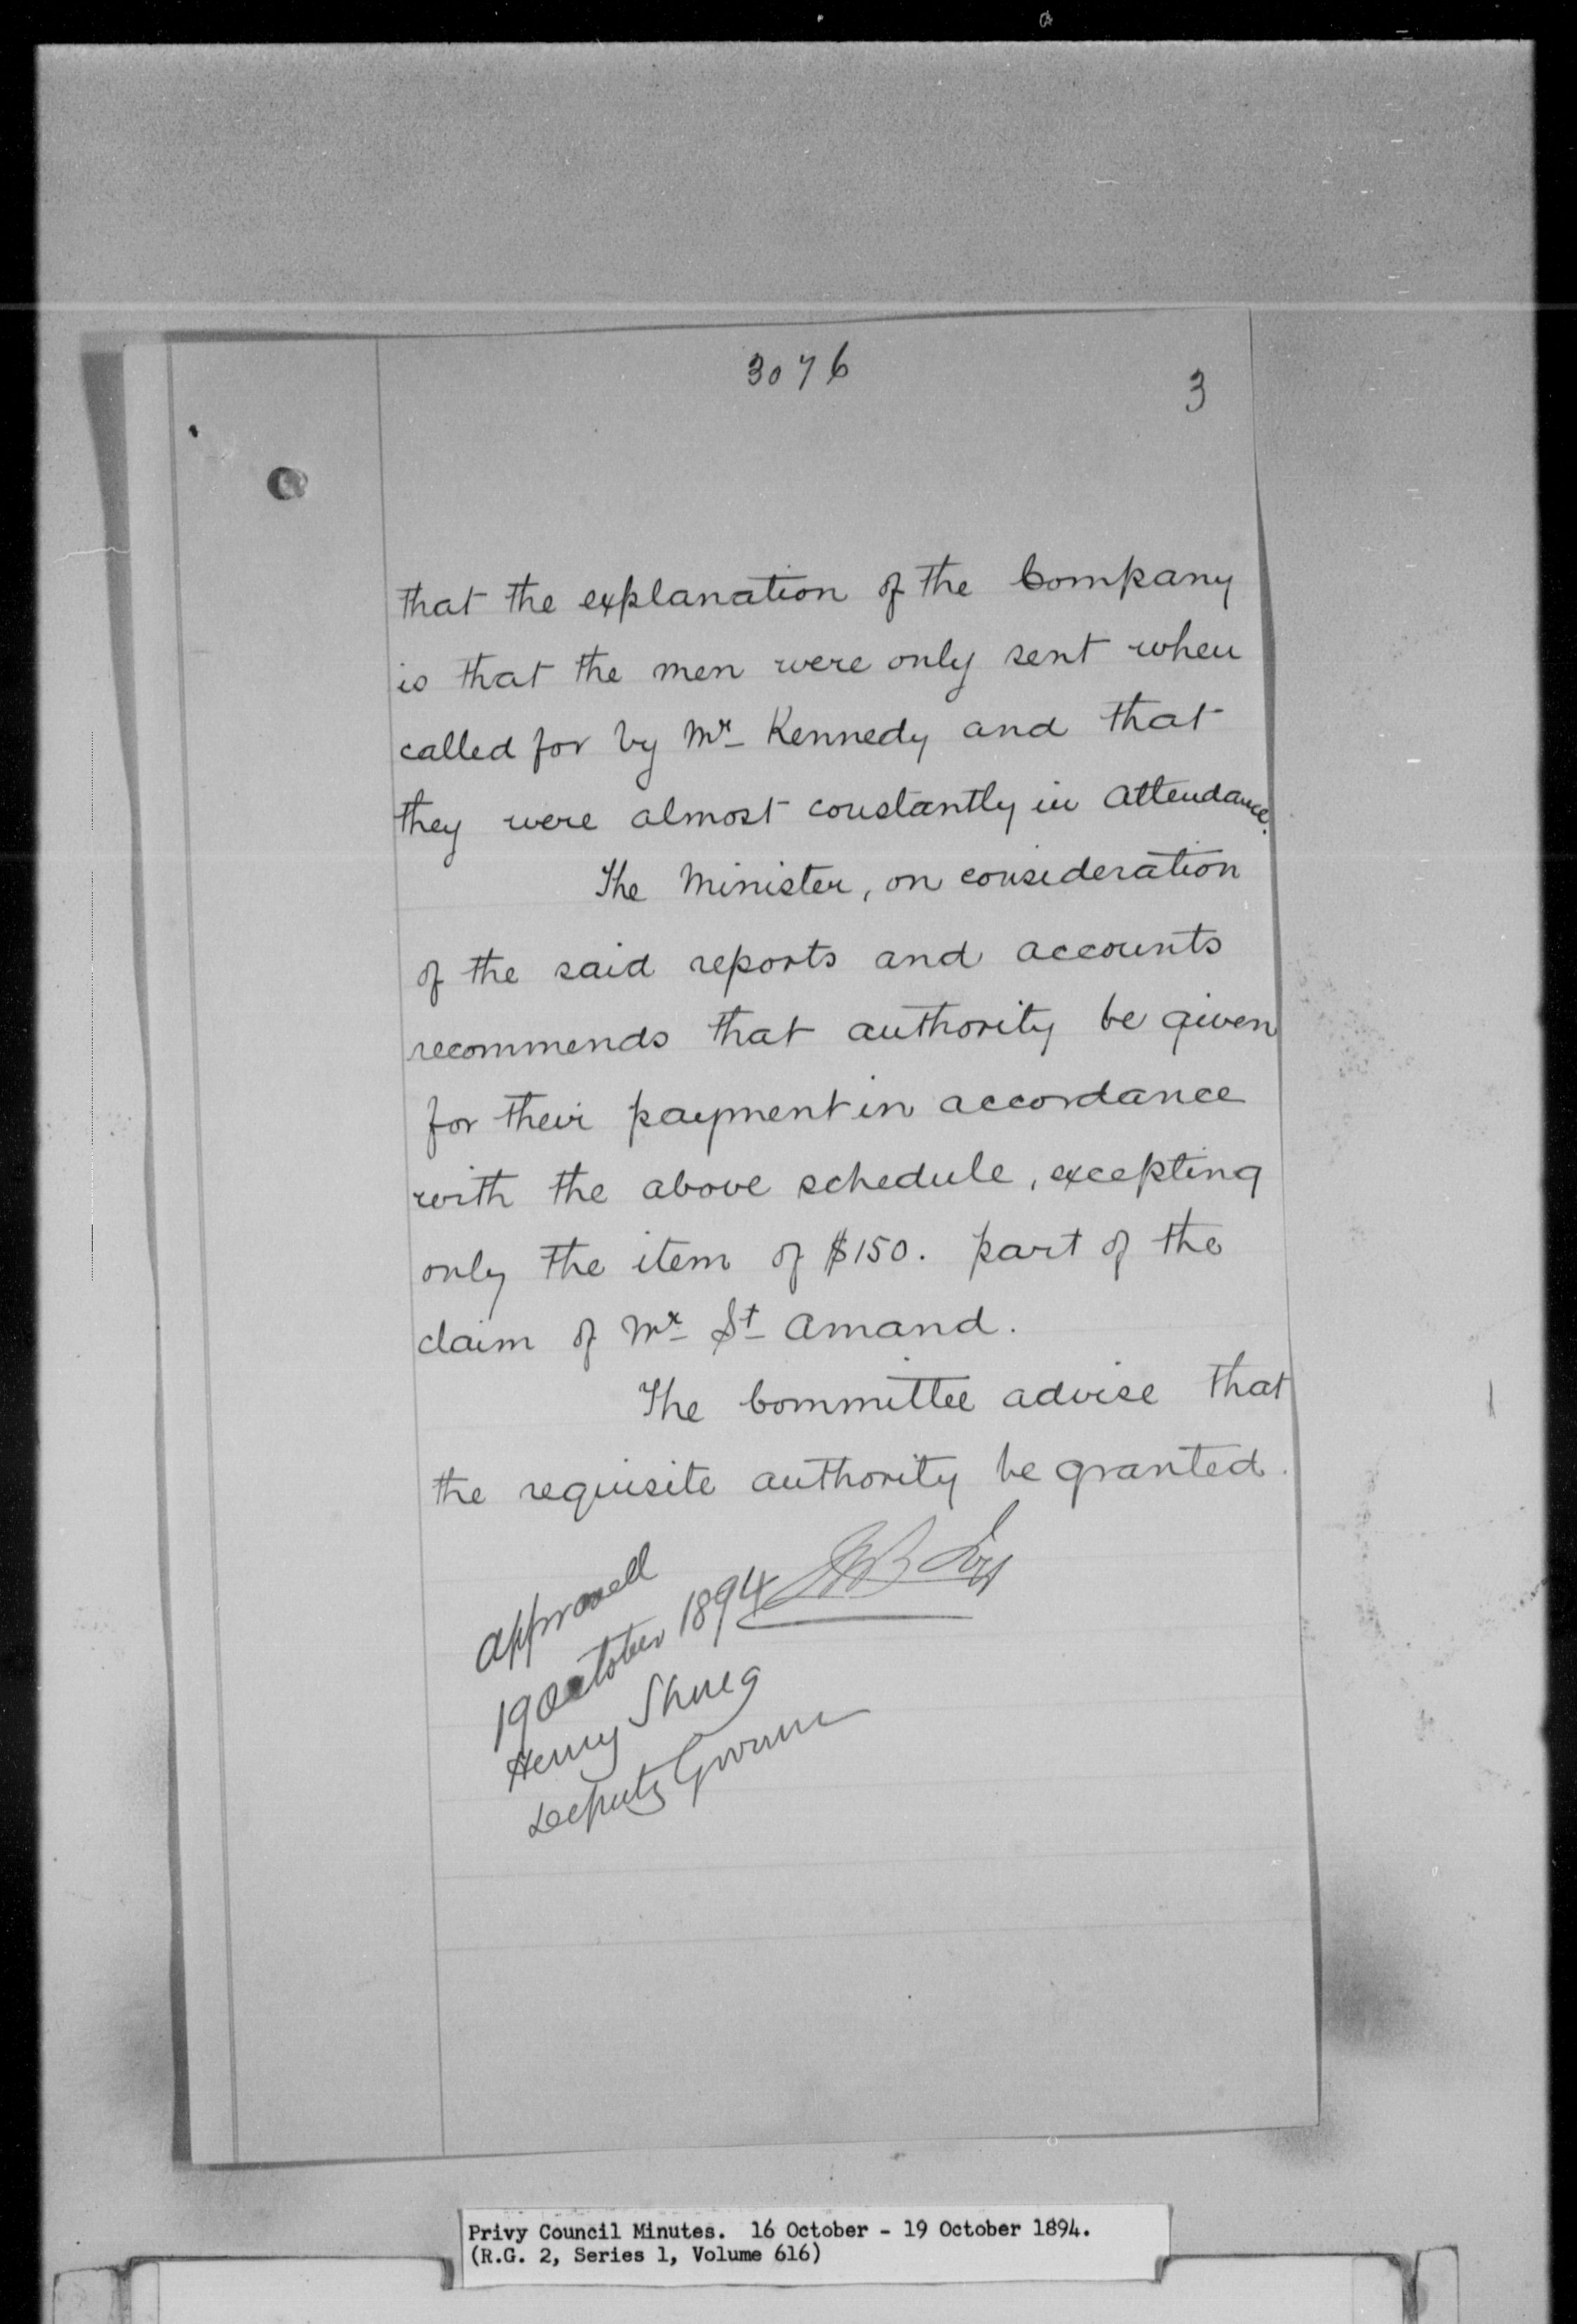 3076
3
that the explanation of the Company
is that the men were only sent when
called for by Mr Kennedy and that
they were almost constantly in attendance.
The Minister, on consideration
of the said reports and accounts
recommends that authority be given
for their payment in accordance
with the above schedule, excepting
only the item of $150. part of the
claim of Mr St Amand.
The Committee advise that
the requisite authority be granted.
Approved
19 October 1894
Henry Strong
Deputy Governor
Privy Council Minutes. 16 October - 19 October 1894.
(R.G. 2, Series 1, Volume 616)